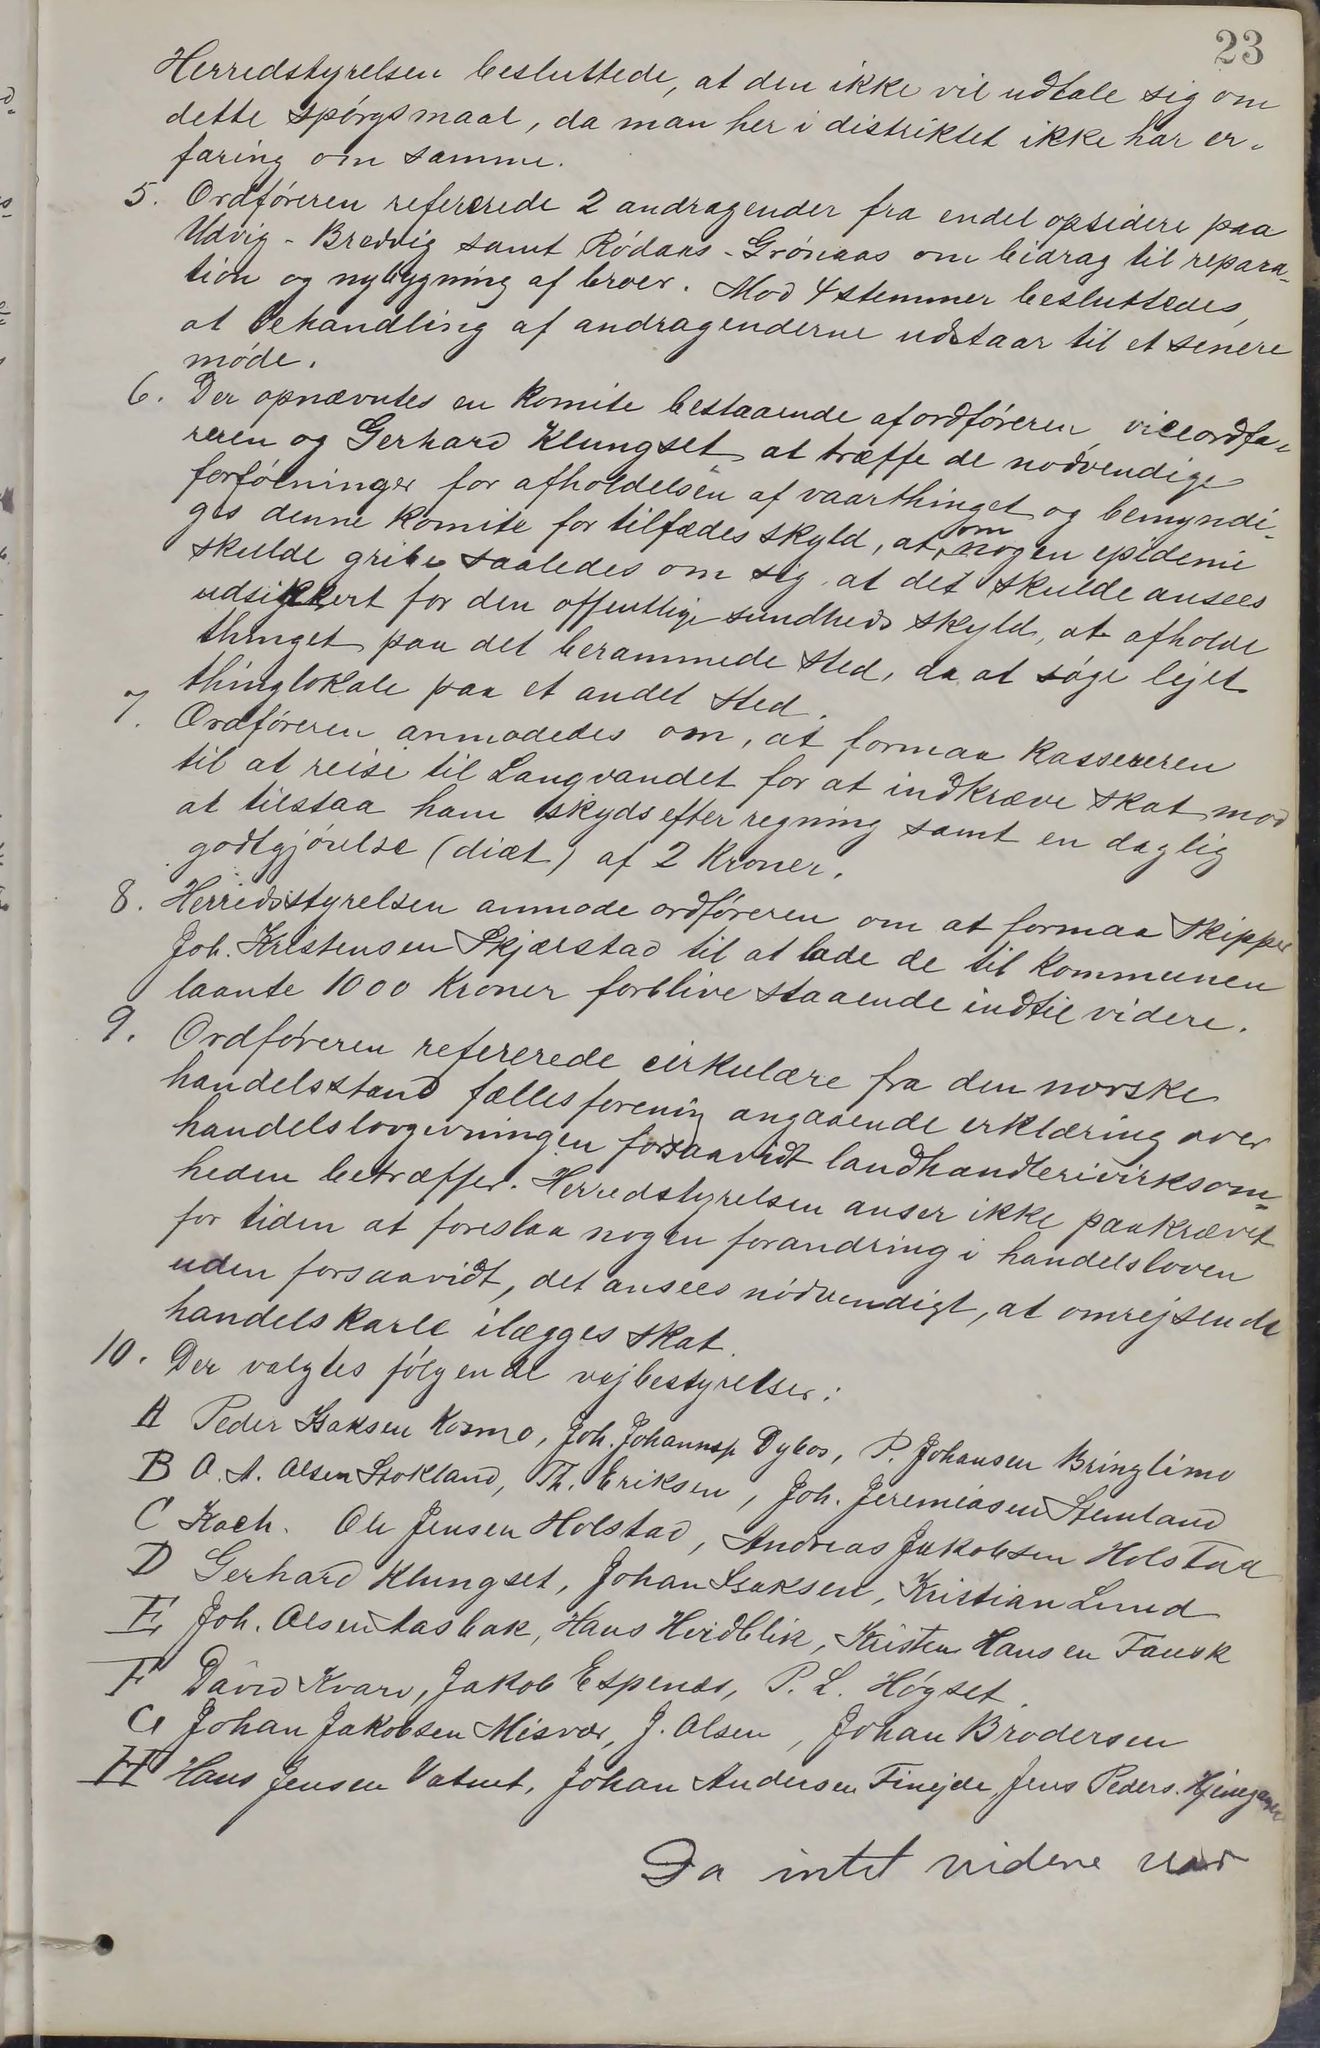 23
Herredstyrelsen besluttede, at den ikke vil udtale sig om
dette spørgsmaal, da man her i distriktet ikke har er-
faring om samme.
5. Ordføreren refererede 2 andragender fra endel opsidere paa
Udvig - Bredvig samt Rødaas - Grønaas om bidrag til repara-
tion og nybygning af broer. Mod 4 stemmer besluttedes,
at behandling af andragenderne udstaar til et senere
møde.
6. Der opnævntes en komite bestaaende af ordføreren, viceordfø-
reren og Gerhard Klungset at træffe de nødvendige
forføininger for afholdelsen af vaarthinget og bemyndi-
ges denne komite for tilfædes skyld, at om nogen epidemi
skulde gribe saaledes om sig at det skulde ansees
udsikkert for den offentlige sundheds skyld, at afholde
thinget paa det berammede sted, da at søge lejet
thinglokale paa et andet sted.
7. Ordføreren anmodedes om, at formaa kassereren
til at reise til Langvandet for at indkræve skat mod
at tilstaa ham skyds efter regning samt en daglig
godtgjørelse (diæt) af 2 Kroner.
8. Herredsstyrelsen anmode ordføreren om at formaa skipper
Joh. Kristensen Skjærstad til at lade de til kommunen
laante 1000 Kroner forblive staaende indtil videre.
9. Ordføreren refererede cirkulære fra den norske
handelsstand fællesforening angaaende erklæring over
handelslovgivningen forsaavidt landhandlerivirksom-
heden betræffer. Herredstyrelsen anser ikke paakrævet
for tiden at foreslaa nogen forandring i handelsloven
uden forsaavidt, det ansees nødvendigt, at omrejsende
handelskarle ilægges skat.
10. Der valgtes følgende vejbestyrelser:
A Peder Isaksen Kosmo, Joh. Johannsp Dybos, P. Johansen Bringlimo
B O. A. Olsen Stokland, Th. Eriksen, Joh. Jeremiasen Stemland
C Koch. Ole Jensen Holstad, Andreas Jakobsen Holstad
D Gerhard Klungset, Johan Isaksen, Kristian Lund
E Joh. Olsen Aasbak, Hans Hvidblik, Kristen Hansen Fausk
F David Kvarv, Jakob Espenæs, P. L. Høgset.
G Johan Jakobsen Misvær, J. Olsen, Johan Brodersen
H Hans Jensen Vatnet, Johan Andersen Finejde, Jens Peders.
Da intet videre var